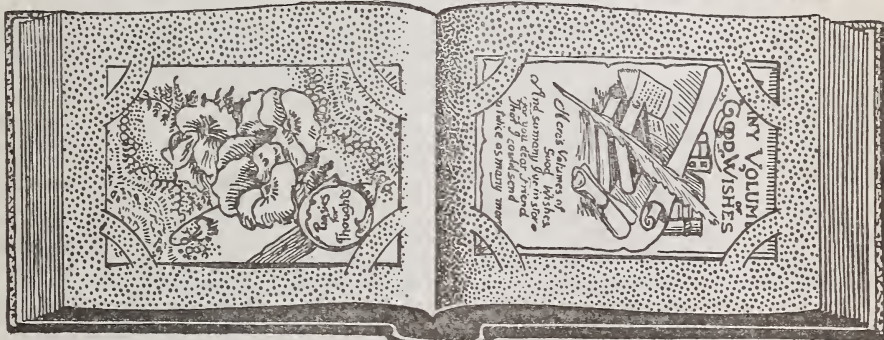 Pansies
for
Thoughts
ANY VOLUM
OF
GOOD WISHES
Volumes of
Good Wishes
And so many in store
for you dear friend
That I could send
twice as many mor